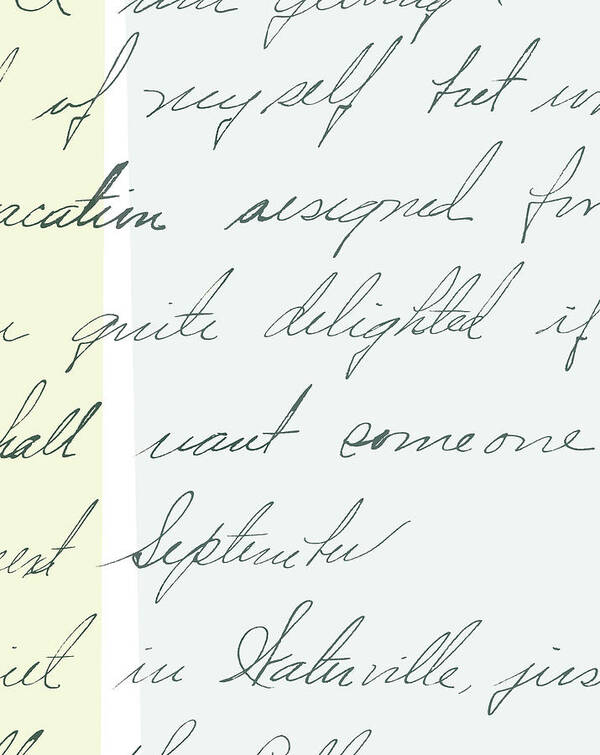 I am getting
of myself but
acation assigned for
quite delighted if
hall want someone
ext September
iet in Waterville, jus
the